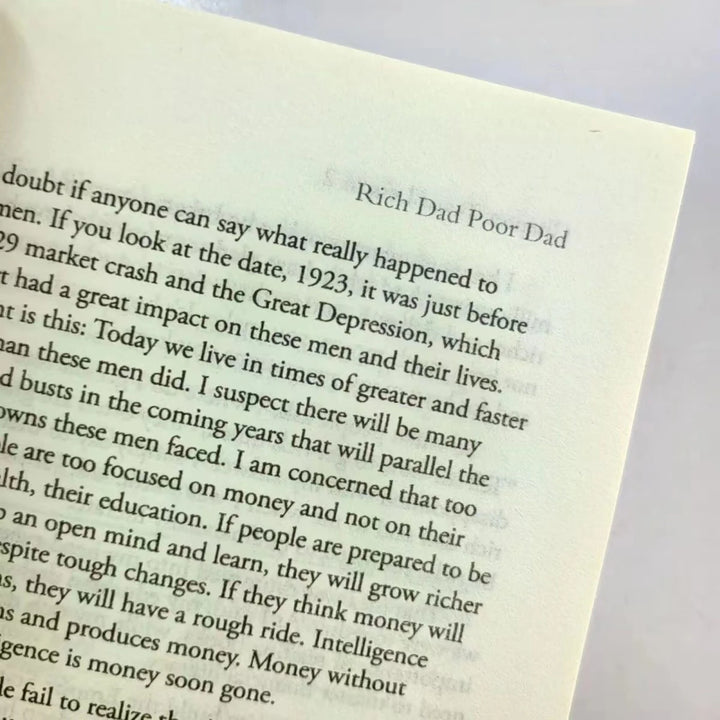 Rich Dad Poor Dad
doubt if anyone can say what really happened to
men. If you look at the date, 1923, it was just before
29 market crash and the Great Depression, which
t had a great impact on these men and their lives.
nt is this: Today we live in times of greater and faster
han these men did. I suspect there will be many
d busts in the coming years that will parallel the
owns these men faced. I am concerned that too
le are too focused on money and not on their
lth, their education. If people are prepared to be
p an open mind and learn, they will grow richer
espite tough changes. If they think money will
s, they will have a rough ride. Intelligence
ns and produces money. Money without
igence is money soon gone.
le fail to realize